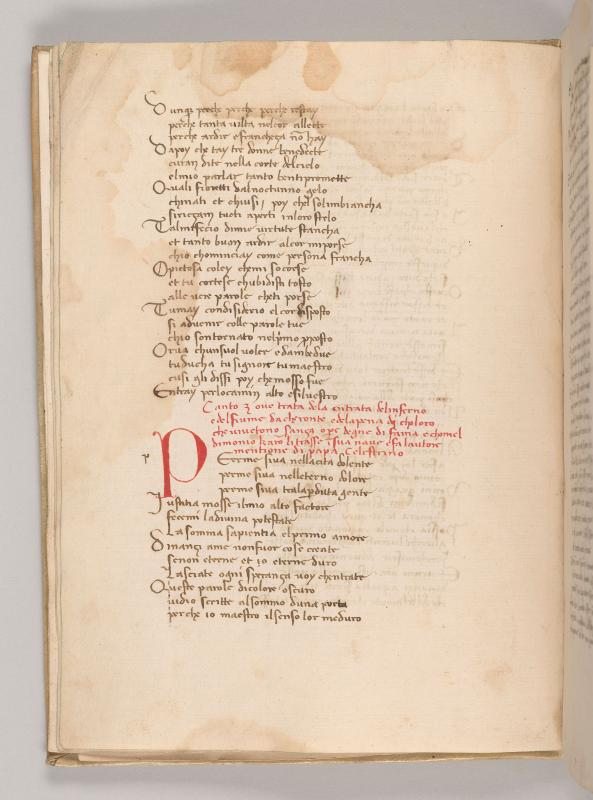 Dunqz perche perche perche restay
perche tanta vilta nelcor allecte
perche ardir efrancheça nō hay
Dapoy che tay tre donne benedecte
curan dite nella corte delcielo
elmio parlar tanto bentipromette
Quali fioretti dalnocturno gelo
chinati et chiusi / poy chel solimbiancha
siriçzan tucti aperti inloro stelo
Talmifecio dimie virtute stancha
et tanto buon ardir alcor micorse
chio chominciay come persona francha
O pietosa coley chemi socorse
et tu cortese chubidisti tosto
alle vere parole cheti porse
Tumay condisiderio el cor disposto
si advenir colle parole tue
chio sontornato nelprimo proposto
Orva chunsol volere edambedue
tuducha tu signore tu maestro
cusi gli dissi poy che mosso fue
Entray perlocamin alto esilvestro
Canto 3 ove trata dela entrata delinferno
edelfiume dacheronte edelapena di choloro
che vivetono sança opere degne di fama echomel
dimonio karo li trasse ī sua nave efa lautore
mentione di papa Celestrino
Perme siva nellacita dolente
perme siva nelleterno dolore
perme siva tralapduta gente
Justitia mosse ilmio alto factore
fecemi ladivina potestate
La somma sapientia elprimo amore
Dinançi ame nonfuor cose create
senon eterne et io eterne duro
Lasciate ogni sperança voy chentrate
Queste parole dicolore oscuro
vidio scritte alsommo duna porta
perche io maestro ilsenso lor meduro